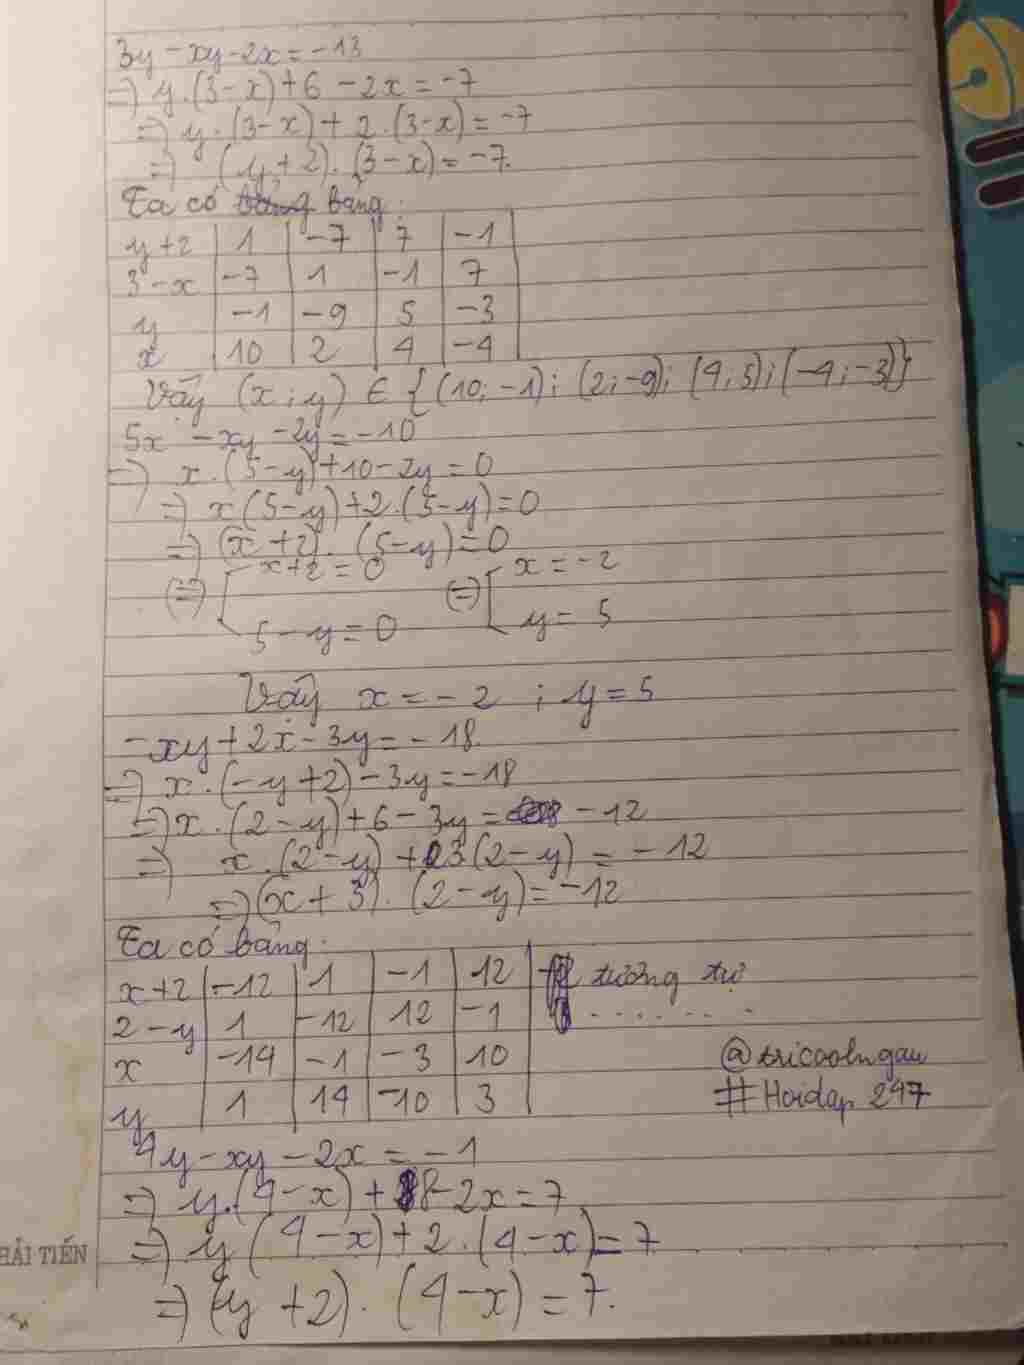 3y - xy - 2x = -13
=) y.(3-x)+6 - 2x = -7
=) y.(3-x)+ 2.(3-x) = -7
=) (y+2).(3-x) = -7.
Ta có bảng:
y+2 | 1 | -7 | 7 | -1
3-x | -7 | 1 | -1 | 7
y | -1 | -9 | 5 | -3
x | 10 | 2 | 4 | -4
Vậy (x;y) ∈ {(10;-1); (2;-9); (4;5); (-4;-3)}
5x - xy - 2y = -10
=) x.(5-y)+10-2y = 0
=) x(5-y)+2.(5-y)=0
=) (x+2).(5-y)=0
(=) [ x+2=0 (=) [ x = -2
5-y=0 y = 5
Vậy x = -2 ; y = 5
-xy+2x-3y = -18.
=) x.(-y+2)-3y = -18
=) x.(2-y)+6-3y = -12
=) x.(2-y) + 3(2-y) = -12
=) (x+3).(2-y) = -12
Ta có bảng:
x+2 | -12 | 1 | -1 | 12 | tương tự
2-y | 1 | -12 | 12 | -1 | .......
x | -14 | -1 | -3 | 10 @tricoolngau
y | 1 | 14 | -10 | 3 #Hoidap 247
4y-xy-2x = -1
=) y.(4-x)+8-2x=7
=) y(4-x)+2.(4-x)=7
=) (y+2).(4-x)=7.
HẢI TIẾN